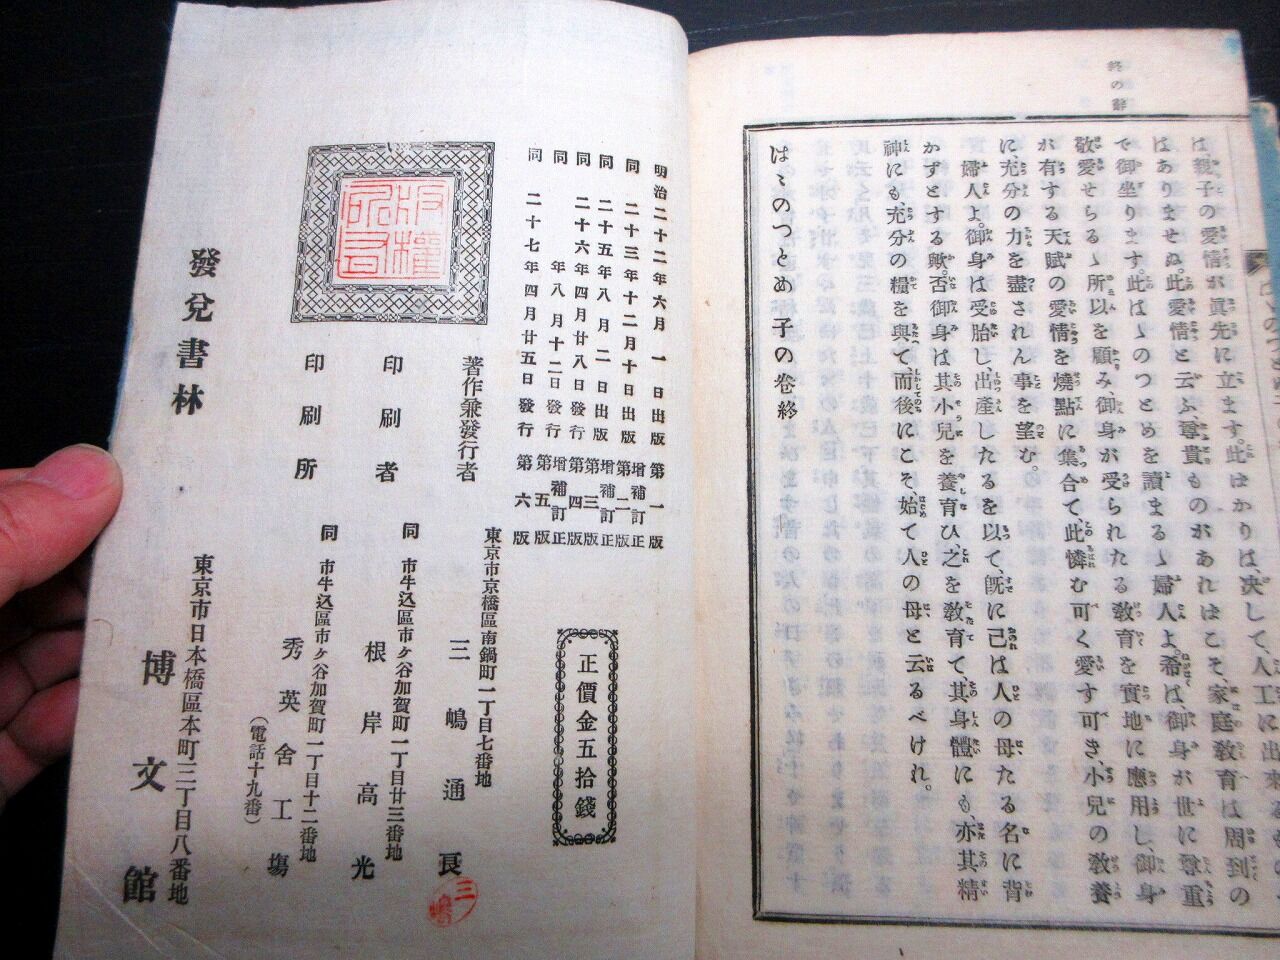 終の辭
は、親子の愛情が眞先に立ます。此ばかりは、决して、人工に出來
はありませぬ。此愛情と云ふ、尊貴ものがあればこそ、家庭敎育は周到の
で御坐ります。此はゝのつとめを讀まるゝ婦人よ。希は、御身が世に尊重
敬愛せらるゝ所以を顧み、御身が受られたる敎育を實地に應用し、御身
が有する天賦の愛情を燒點に集合て此憐む可く愛す可き、小兒の敎養
に、充分の力を盡されん事を望む。
婦人よ。御身は受胎し、出產したるを以て、旣に己は人の母たる名に背
かずとする歟。否御身は其小兒を養育ひ之を敎育て、其身體にも、亦其精
神にも、充分の糧を與て、而後にこそ、始て人の母と云るべけれ。
はゝのつとめ子の卷終
明治二十二年六月一日出版 第一版
同 二十三年十二月十日出版 增補訂正第二版
同 二十五年八月二日出版 增補訂正第三版
同 二十六年四月廿八日發行 第四版
同 年八月十二日發行 增補訂正第五版
同 二十七年四月廿五日發行 第六版
正價金五拾錢
版權所有
著作兼發行者
東京市京橋區南鍋町一丁目七番地
三嶋通良
三嶋
印刷者
同市牛込區市ヶ谷加賀町一丁目廿三番地
根岸高光
印刷所
同市牛込區市ヶ谷加賀町一丁目十二番地
秀英舍工場
（電話十九番）
發兌書林
東京市日本橋區本町三丁目八番地
博文館